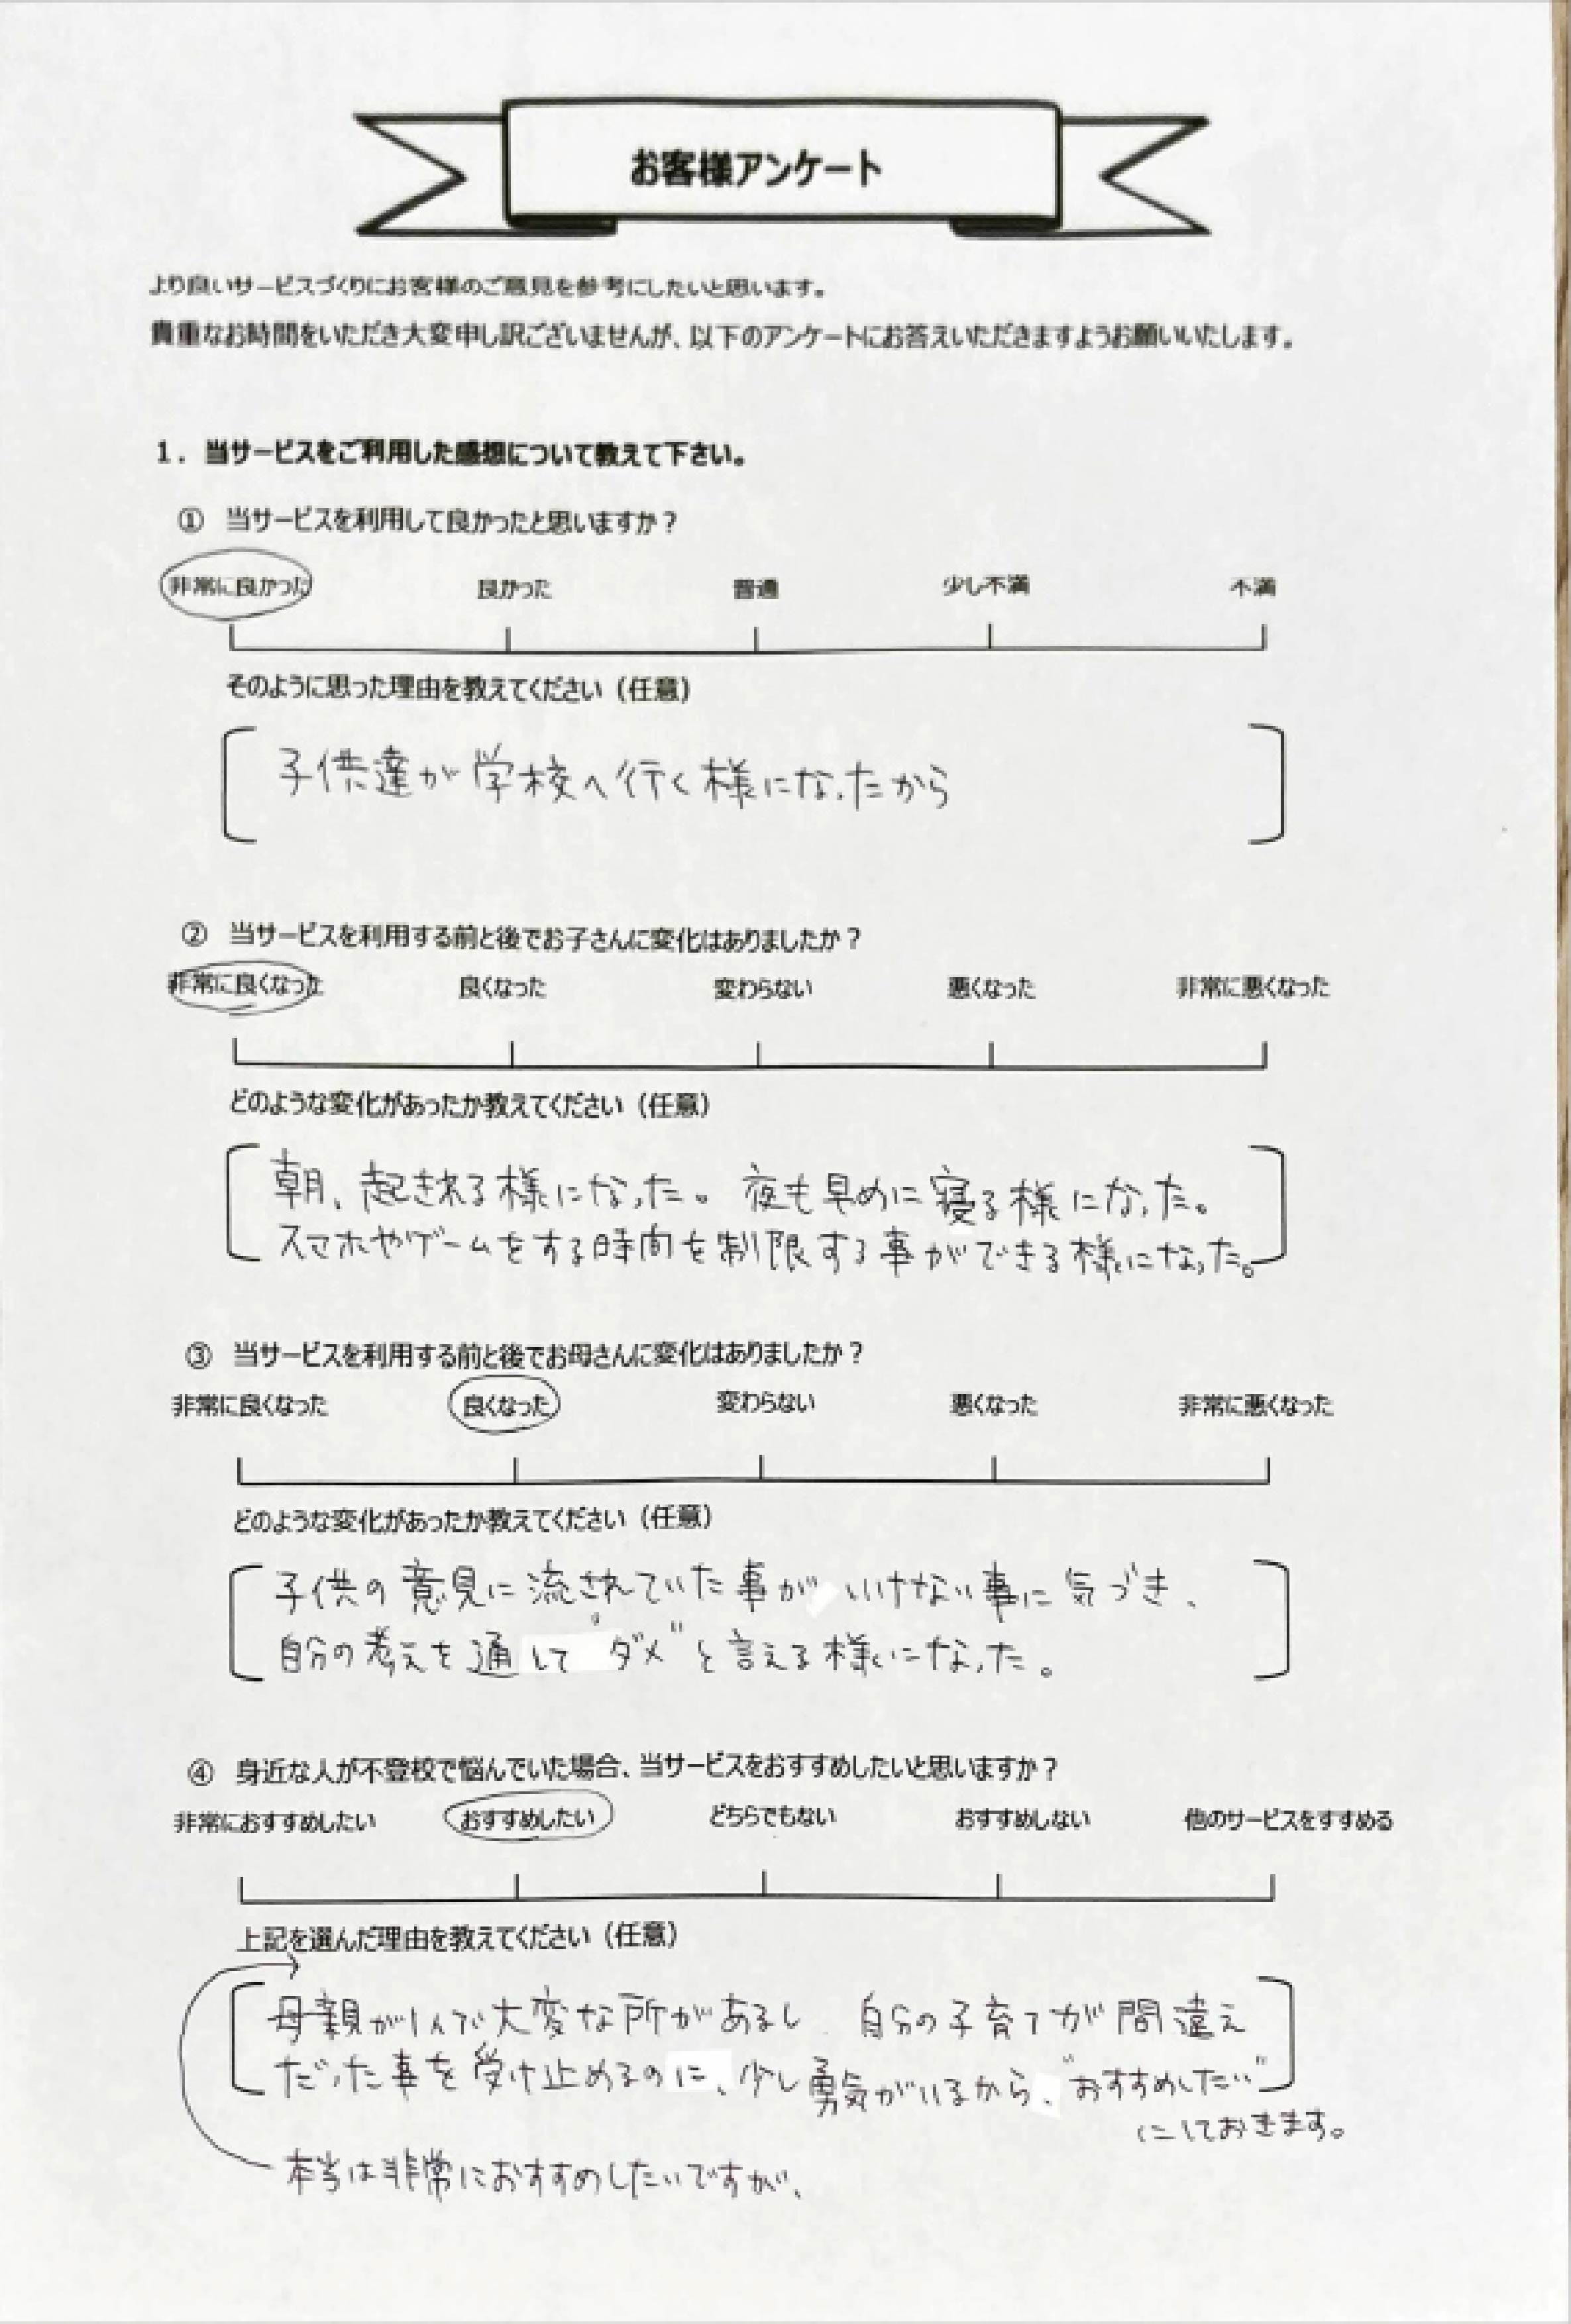 お客様アンケート
より良いサービスづくりにお客様のご意見を参考にしたいと思います。
貴重なお時間をいただき大変申し訳ございませんが、以下のアンケートにお答えいただきますようお願いいたします。
1．当サービスをご利用した感想について教えて下さい。
① 当サービスを利用して良かったと思いますか？
非常に良かった 良かった 普通 少し不満 不満
そのように思った理由を教えてください（任意）
子供達が学校へ行く様になったから
② 当サービスを利用する前と後でお子さんに変化はありましたか？
非常に良くなった 良くなった 変わらない 悪くなった 非常に悪くなった
どのような変化があったか教えてください（任意）
朝、起きれる様になった。夜も早めに寝る様になった。
スマホやゲームをする時間を制限する事ができる様になった。
③ 当サービスを利用する前と後でお母さんに変化はありましたか？
非常に良くなった 良くなった 変わらない 悪くなった 非常に悪くなった
どのような変化があったか教えてください（任意）
子供の意見に流されていた事が いけない事に気づき、
自分の考えを通して "ダメ" と言える様になった。
④ 身近な人が不登校で悩んでいた場合、当サービスをおすすめしたいと思いますか？
非常におすすめしたい おすすめしたい どちらでもない おすすめしない 他のサービスをすすめる
上記を選んだ理由を教えてください（任意）
母親が1人で大変な所があるし 自分の子育てが間違え
だった事を受け止めるのに、少し勇気がいるから、"おすすめしたい"
にしておきます。
本当は非常におすすめしたいですが、